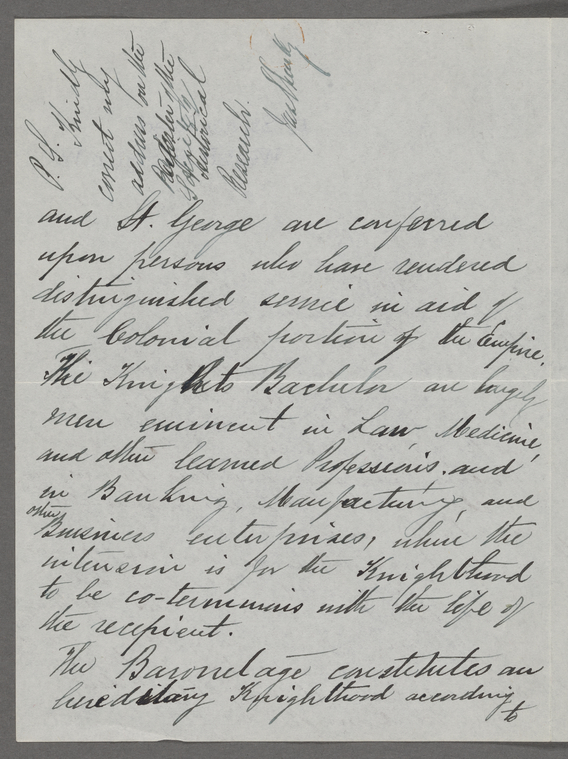 P.S. Kindly
correct my
address on the
Register of the
Society of
Historical
Research.
and St. George are conferred
upon persons who have rendered
distinguished service in aid of
the Colonial portion of the Empire.
The Knights Bachelor are largely
men eminent in Law, Medicine,
and other learned Professions, and
in Banking, Manfacturing, and
other
Business enterprises, when the
intension is for the Knighthood
to be co-terminus with the life of
the recepient.
The Baronetage constitutes an
hereditary Knighthood according
to